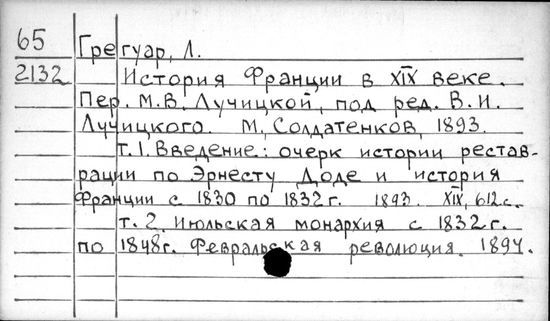 65 Грегуар, Л.
2132 История Франции в XIX веке.
Пер. М.В. Лучицкой, под ред. В.И.
Лучицкого. М, Солдатенков, 1893.
т.1. Введение: очерк истории рестав-
рации по Эрнесту Доде и история
Франции с 1830 по 1832г. 1893. XIX, 612с.
т. 2. Июльская монархия с 1832г.
по 1848г. Февральская революция. 1894.